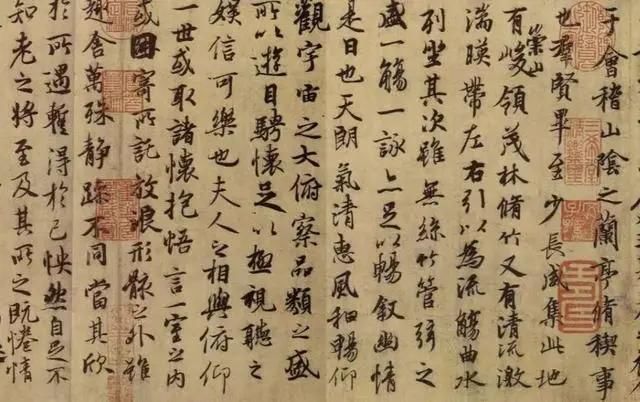 于會稽山陰之蘭亭脩稧事
也羣賢畢至少長咸集此地
有崇山峻領茂林脩竹又有清流激
湍暎帶左右引以為流觴曲水
列坐其次雖無絲竹管弦之
盛一觴一詠亦足以暢叙幽情
是日也天朗氣清惠風和暢仰
觀宇宙之大俯察品類之盛
所以遊目騁懷足以極視聽之
娛信可樂也夫人之相與俯仰
一世或取諸懷抱悟言一室之內
或因寄所託放浪形骸之外雖
趣舍萬殊静躁不同當其欣
於所遇暫得於己怏然自足不
知老之將至及其所之既惓情